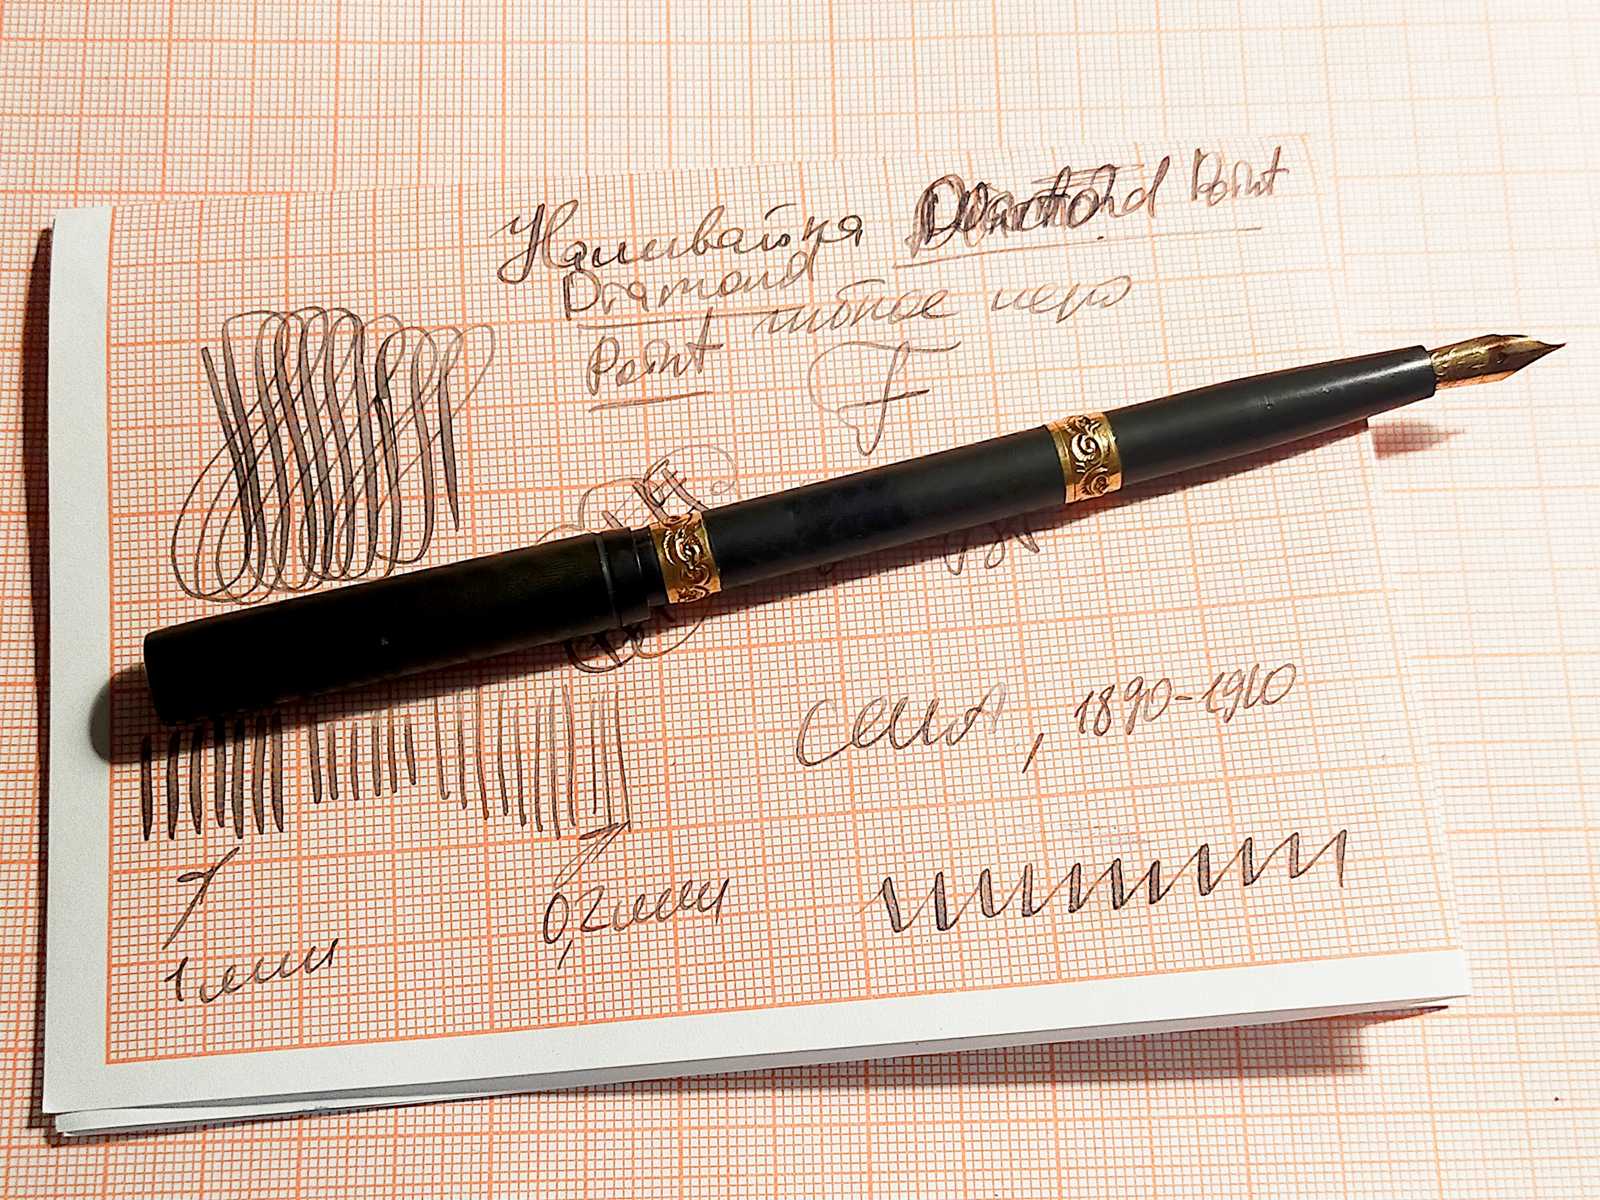 Наливайка Diamond Point
Diamond
Point гибкое перо
F
США, 1890-1910
1 мм
0,2 мм